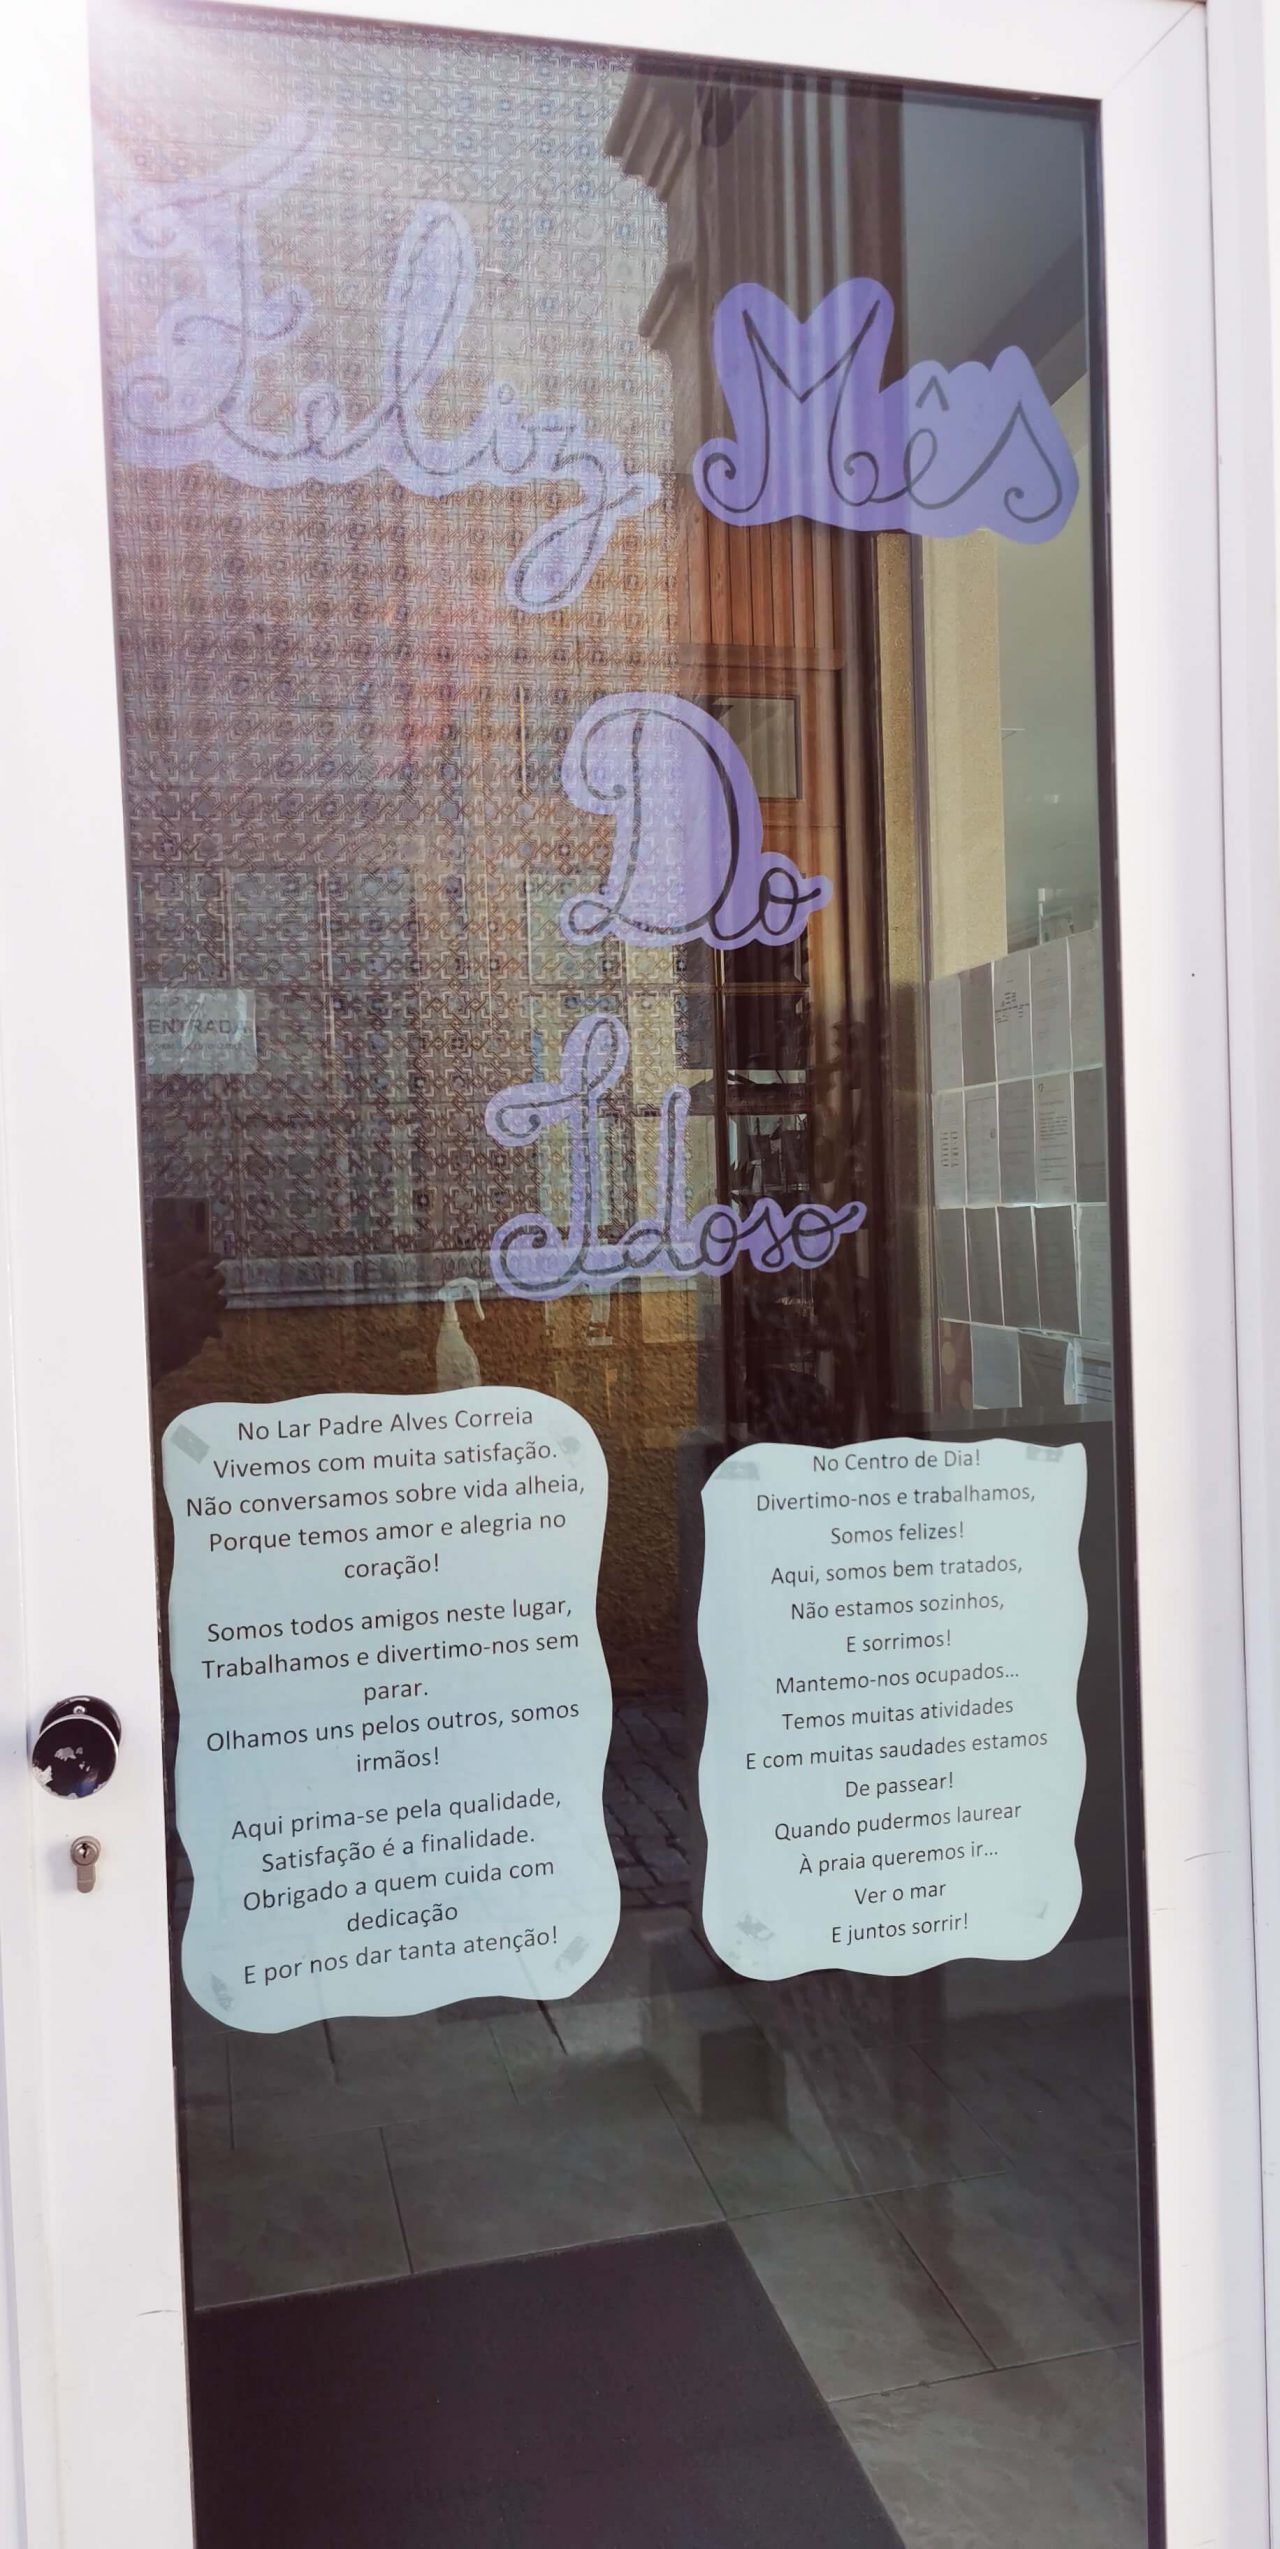 Feliz Mês
Do
Idoso
ENTRADA
No Lar Padre Alves Correia
Vivemos com muita satisfação.
Não conversamos sobre vida alheia,
Porque temos amor e alegria no
coração!
Somos todos amigos neste lugar,
Trabalhamos e divertimo-nos sem
parar.
Olhamos uns pelos outros, somos
irmãos!
Aqui prima-se pela qualidade,
Satisfação é a finalidade.
Obrigado a quem cuida com
dedicação
E por nos dar tanta atenção!
No Centro de Dia!
Divertimo-nos e trabalhamos,
Somos felizes!
Aqui, somos bem tratados,
Não estamos sozinhos,
E sorrimos!
Mantemo-nos ocupados...
Temos muitas atividades
E com muitas saudades estamos
De passear!
Quando pudermos laurear
À praia queremos ir...
Ver o mar
E juntos sorrir!